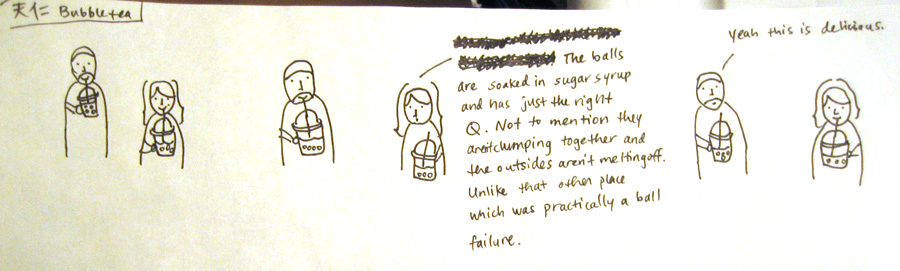 天仁 Bubble tea
The balls
are soaked in sugar syrup
and has just the right
Q. Not to mention they
aren't clumping together and
the outsides aren't melting off.
Unlike that other place
which was practically a ball
failure.
Yeah this is delicious.